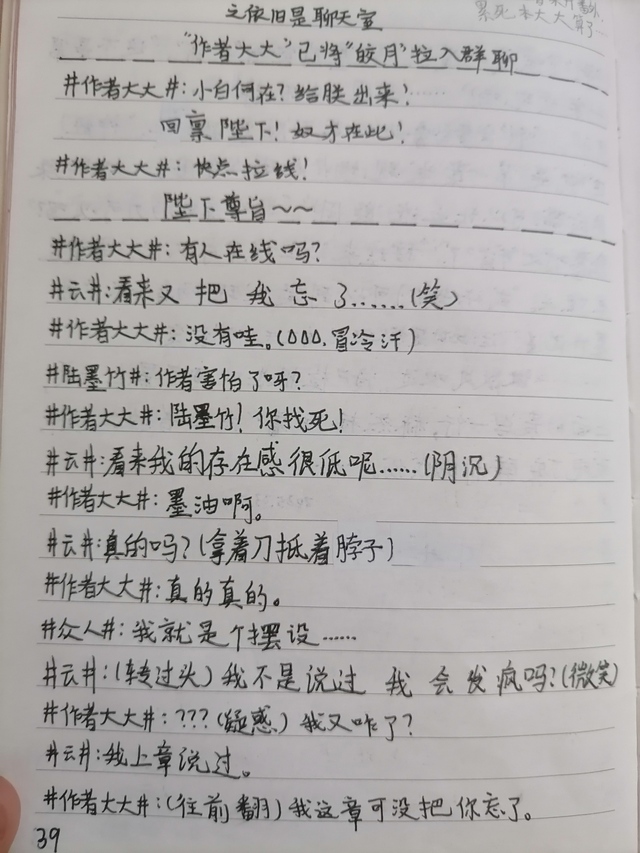 累死本大大算了
之依旧是聊天室
“作者大大”已将“皎月”拉入群聊
#作者大大#:小白何在?给朕出来!……
回禀陛下!奴才在此!
#作者大大#:快点拉线!
陛下尊旨~~
#作者大大#:有人在线吗?
#云#:看来又把我忘了……(笑)
#作者大大#:没有哇。(ООО.冒冷汗)
#陆墨竹#:作者害怕了呀?
#作者大大#:陆墨竹!你找死!
#云#:看来我的存在感很低呢……(阴沉)
#作者大大#:墨油啊。
#云#:真的吗?(拿着刀抵着脖子)
#作者大大#:真的真的。
#众人#:我就是个摆设……
#云#:(转过头)我不是说过我会发疯吗?(微笑)
#作者大大#:???(疑惑)我又咋了?
#云#:我上章说过。
#作者大大#:(往前翻)我这章可没把你忘了。
39